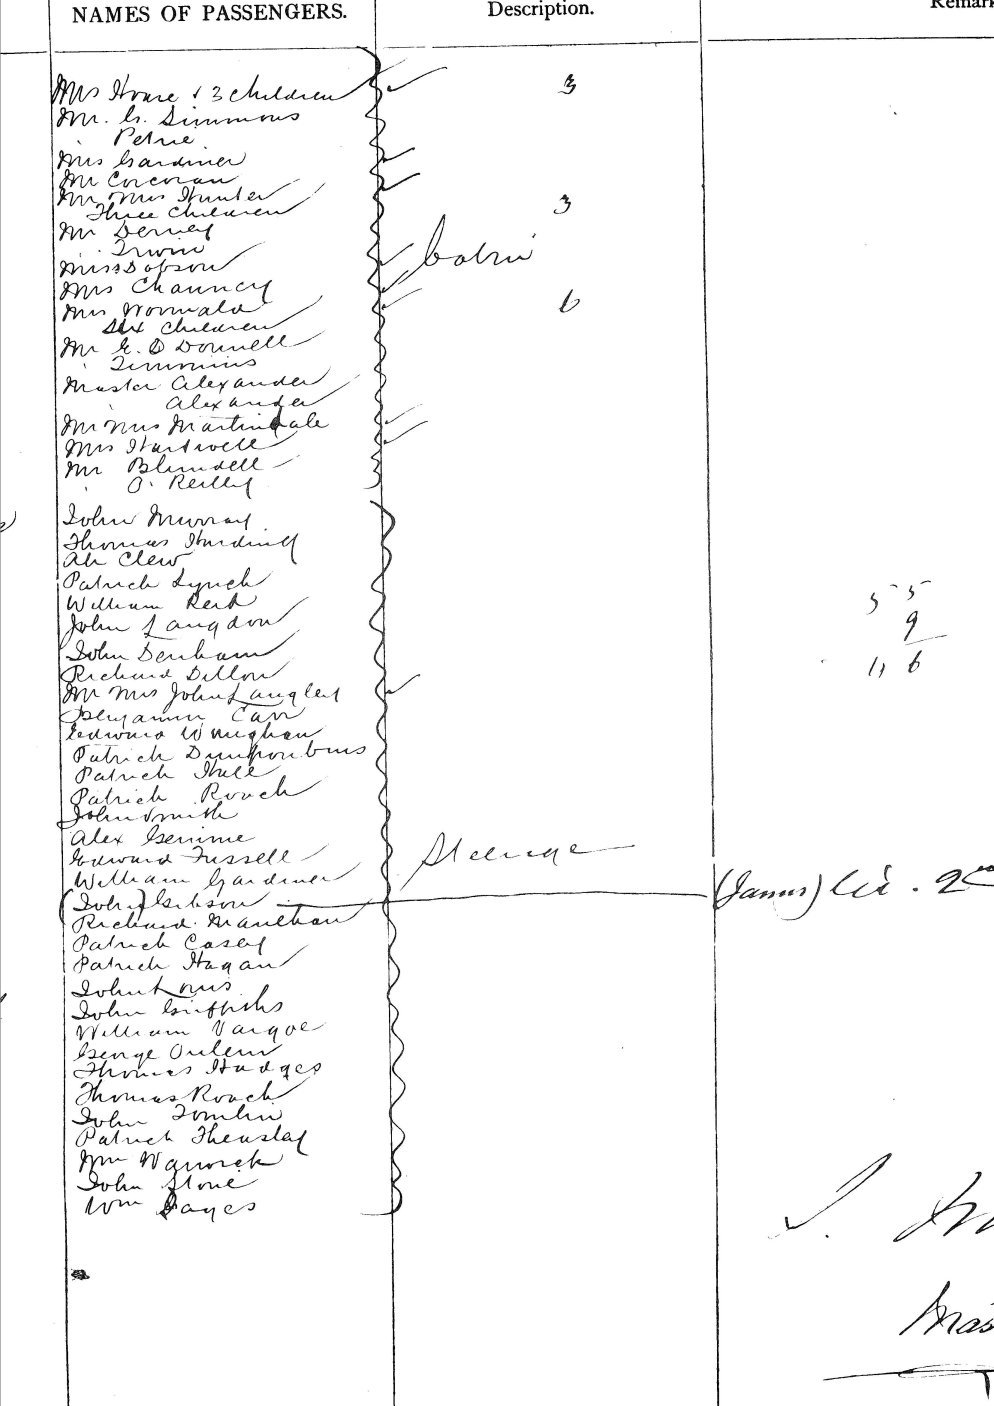 NAMES OF PASSENGERS.
Description.
Remark
Mrs Howe & 3 children
3
Mr. G. Simmons
" Petrie
Mrs Gardiner
Mr Corcoran
Mr Mrs Hunter
Three Children
3
Mr Derney
" Irwin
Cabin
Miss Dobson
Mrs Chauncy
Mrs Wormald
6
Six Children
Mr E. O Donnell
" Timmins
Master Alexander
" Alexander
Mr Mrs Martindale
Mrs Hartwell
Mr Blundell
" O. Reilly
John Murray
Thomas Harding
Ah Clew
Patrick Lynch
William Reid
55
John Langdon
9
John Denham
Richard Dillon
116
Mr Mrs John Langley
Benjamin Carr
Edward Vaughan
Patrick
Patrick Hall
Patrick Roach
John Smith
Alex
Edward Fussell
Steerage
William Gardiner
(John) Gibson
(James)
Richard
Patrick Casey
Patrick Hagan
John Louis
John Griffiths
William
George
Thomas Hodges
Thomas Roach
John Tomlin
Patrick
Wm Warwick
John Stone
Wm
Mas